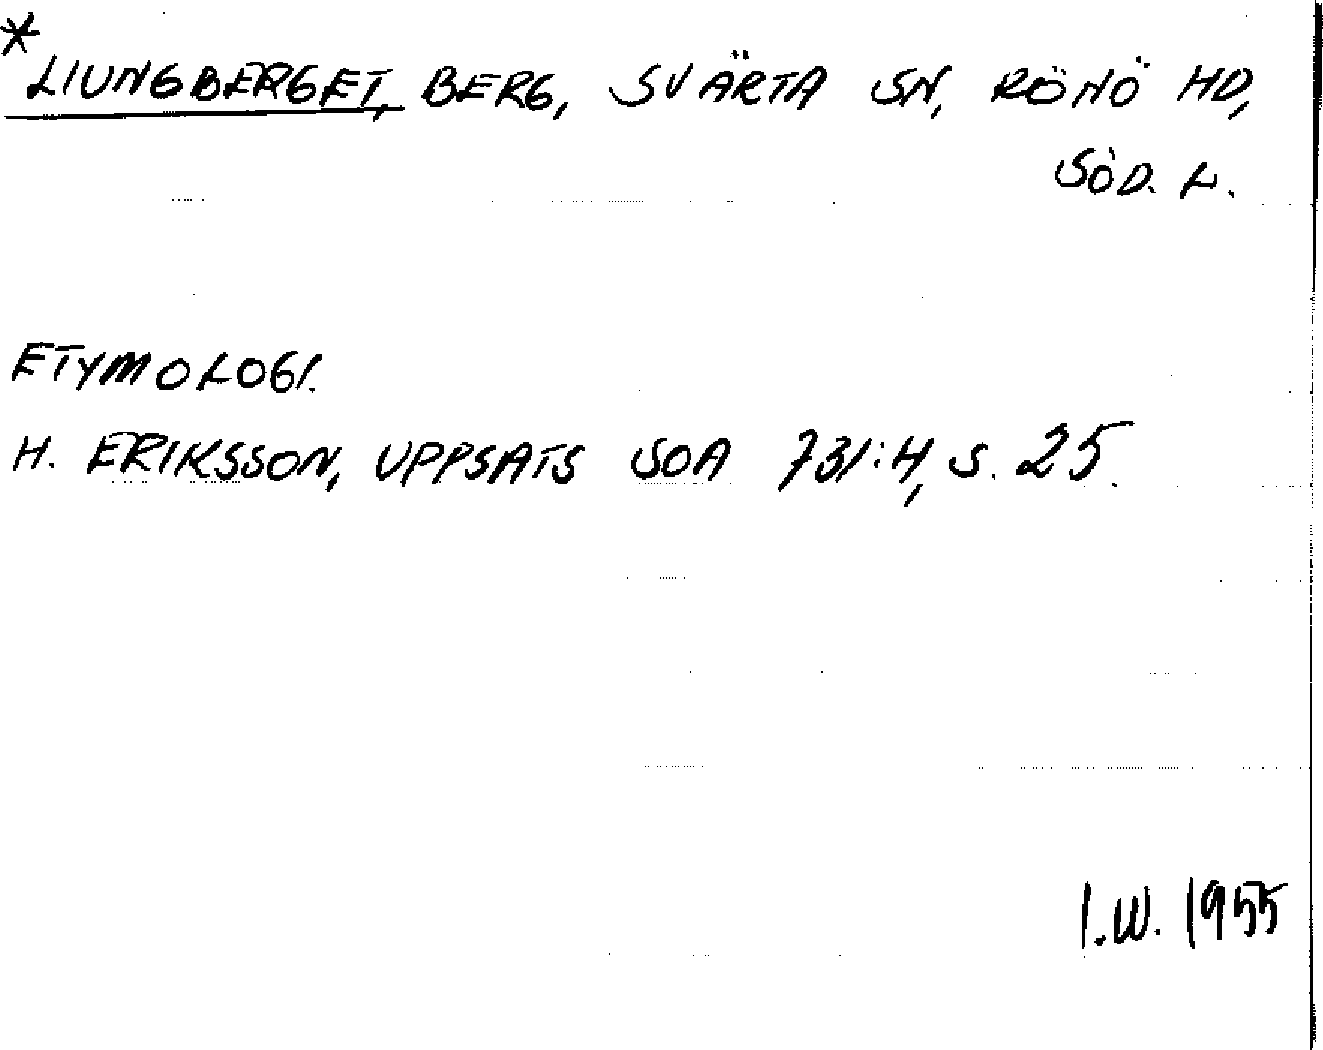 *LIUNGBERGET, BERG, SVÄRTA SN, RÖNÖ HD,
SÖD. L.
ETYMOLOGI.
H. ERIKSSON, UPPSATS SOA 731:4, S. 25.
I.W. 1955